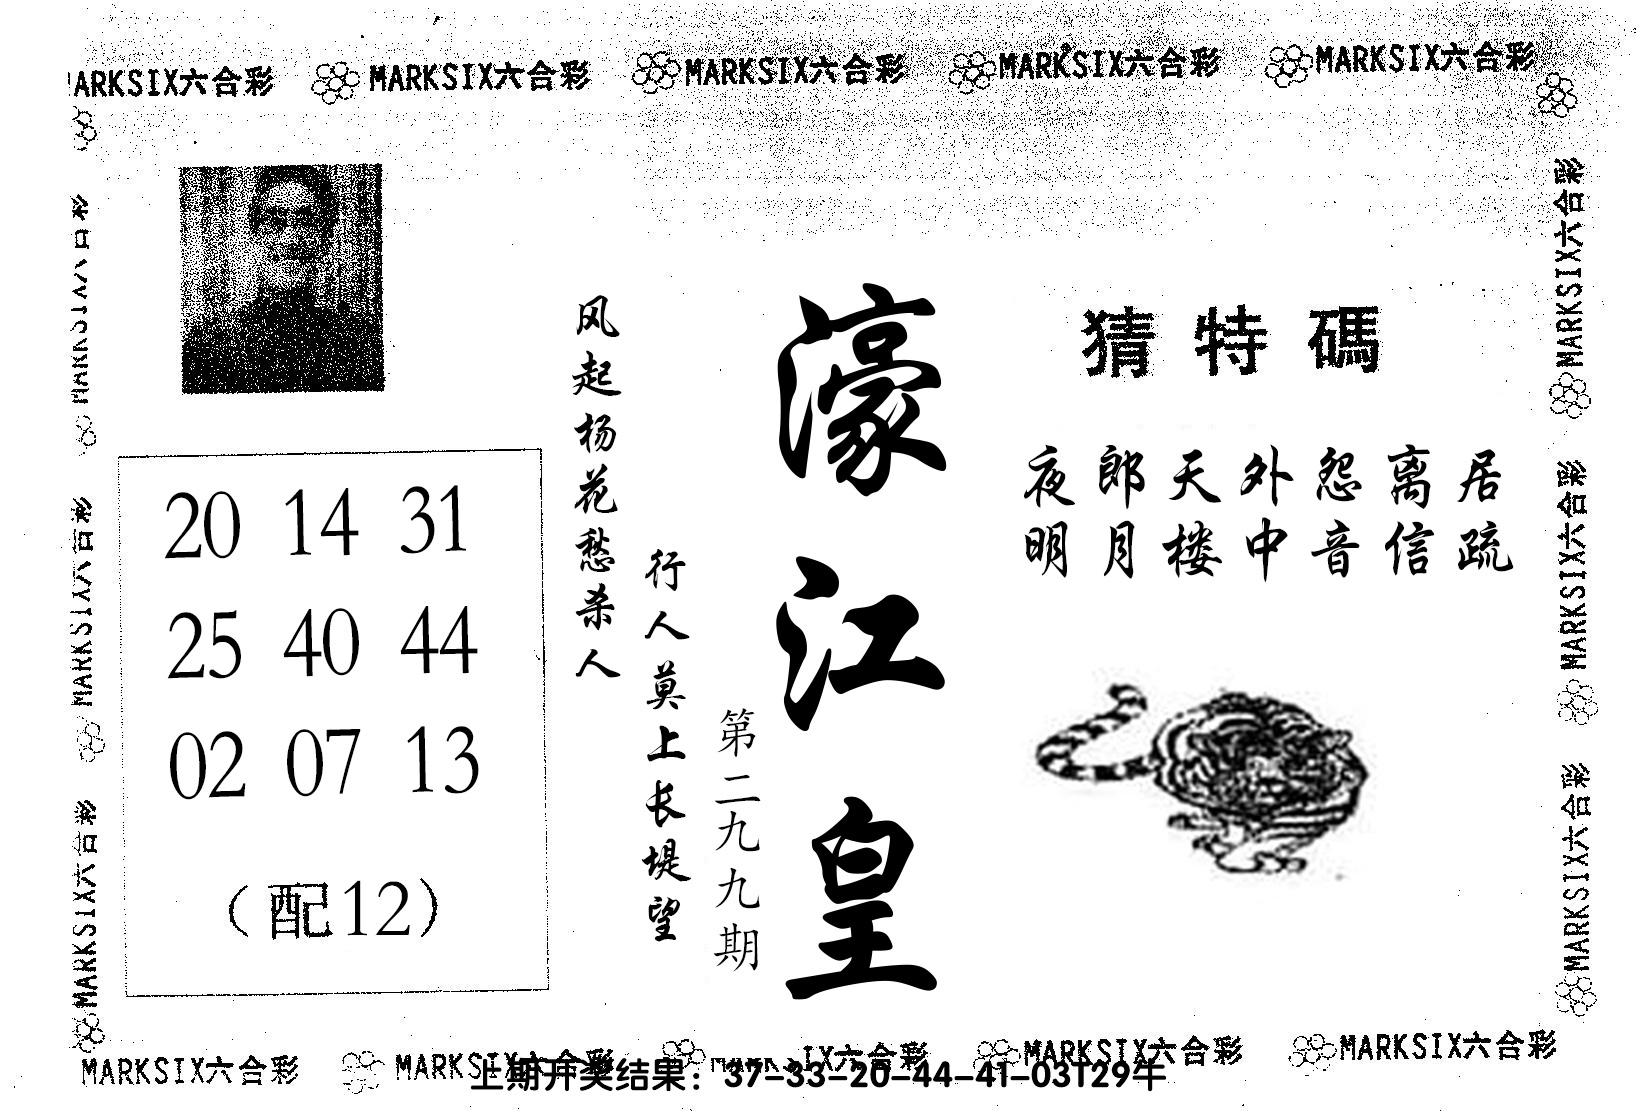 MARKSIX六合彩 MARKSIX六合彩 MARKSIX六合彩 MARKSIX六合彩
猜特碼
夜郎天外怨离居
明月楼中音信疏
濠江皇
第二九九期
行人莫上长堤望
风起杨花愁杀人
20 14 31
25 40 44
02 07 13
（配12）
MARKSIX六合彩
MARKSIX六合彩
MARKSIX六合彩
MARKSIX六合彩
MARKSIX六合彩
MARKSIX六合彩 MARKSIX六合彩 MARKSIX六合彩 MARKSIX六合彩
上期开奖结果：37-33-20-44-41-03T29午